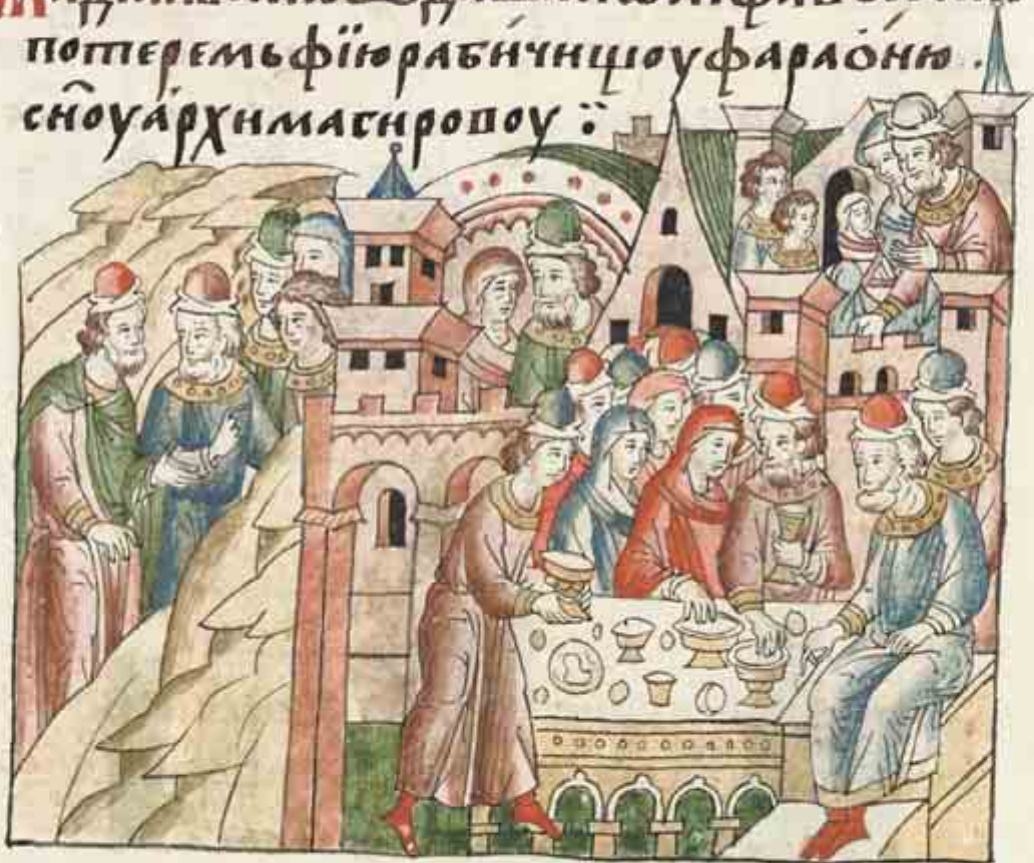 потеремьфїюраби́чищоуфараѻ́ню .
сн҃оуа́рхимагировоу :